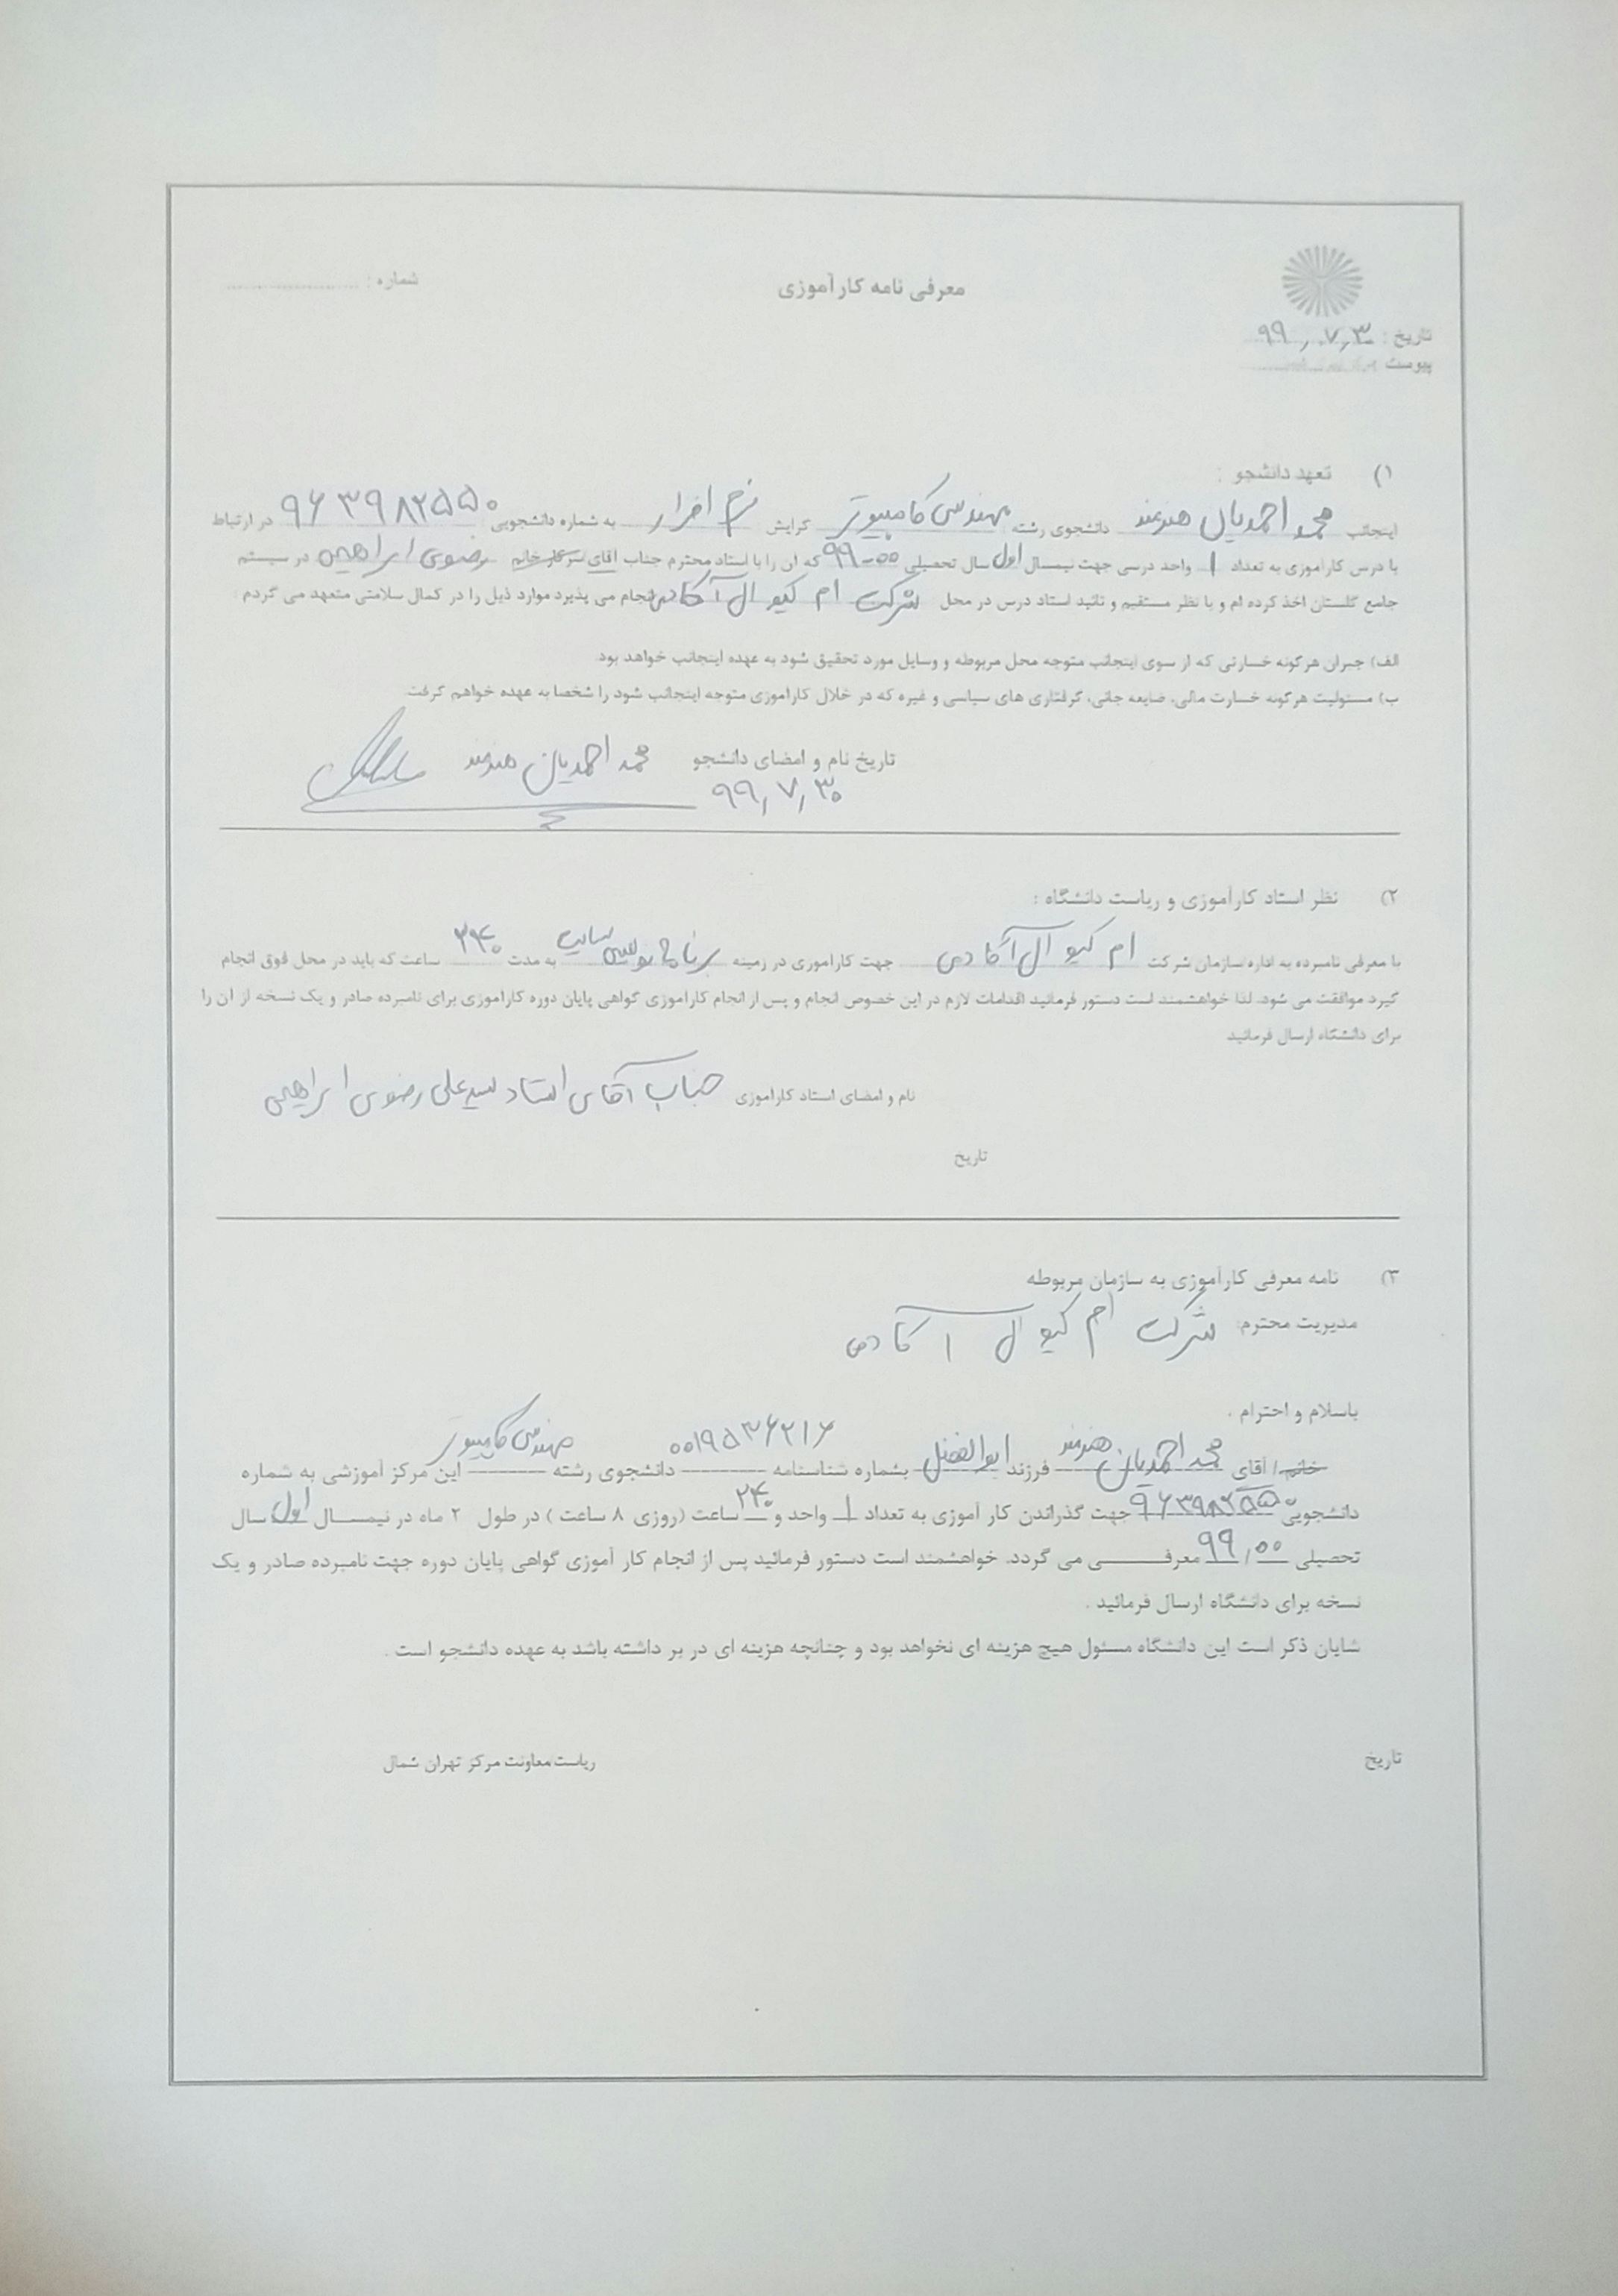 شماره : ......................
معرفی نامه کارآموزی
تاریخ : ۹۹,۷,۳۰
پیوست
۱) تعهد دانشجو :
اینجانب محمد احمدیان هنرمند دانشجوی رشته مهندسی کامپیوتر گرایش نرم افزار به شماره دانشجویی ۹۶۳۹۸۲۵۵۰ در ارتباط
با درس کارآموزی به تعداد ۱ واحد درسی جهت نیمسال اول سال تحصیلی ۰۰-۹۹ که ان را با استاد محترم جناب اقای سرکار خانم رضوی ابراهیمی در سیستم
جامع گلستان اخذ کرده ام و با نظر مستقیم و تائید استاد درس در محل شرکت ام کیو ال آکادمی انجام می پذیرد موارد ذیل را در کمال سلامتی متعهد می گردم :
الف) جبران هرگونه خسارتی که از سوی اینجانب متوجه محل مربوطه و وسایل مورد تحقیق شود به عهده اینجانب خواهد بود.
ب) مسئولیت هرگونه خسارت مالی، ضایعه جانی، گرفتاری های سیاسی و غیره که در خلال کارآموزی متوجه اینجانب شود را شخصا به عهده خواهم گرفت.
تاریخ نام و امضای دانشجو محمد احمدیان هنرمند
۹۹,۷,۳۰
۲) نظر استاد کارآموزی و ریاست دانشگاه :
با معرفی نامبرده به اداره سازمان شرکت ام کیو ال آکادمی جهت کاراموری در زمینه برنامه نویسی سایت به مدت ۲۴۰ ساعت که باید در محل فوق انجام
گیرد موافقت می شود. لذا خواهشمند است دستور فرمائید اقدامات لازم در این خصوص انجام و پس از انجام کارآموزی گواهی پایان دوره کارآموزی برای نامبرده صادر و یک نسخه از ان را
برای دانشگاه ارسال فرمائید.
نام و امضای استاد کاراموزی جناب آقای استاد سید علی رضوی ابراهیمی
تاریخ
۳) نامه معرفی کارآموزی به سازمان مربوطه
مدیریت محترم: شرکت ام کیو ال آکادمی
باسلام و احترام .
خانم/ آقای محمد احمدیان هنرمند فرزند ابوالفضل بشماره شناسنامه ۰۰۱۹۵۳۶۲۱۶ دانشجوی رشته مهندسی کامپیوتر این مرکز آموزشی به شماره
دانشجویی ۹۶۳۹۸۲۵۵۰ جهت گذراندن کار آموزی به تعداد ۱ واحد و ۲۴۰ ساعت (روزی ۸ ساعت ) در طول ۲ ماه در نیمسال اول سال
تحصیلی ۰۰/۹۹ معرفی می گردد. خواهشمند است دستور فرمائید پس از انجام کار آموزی گواهی پایان دوره جهت نامبرده صادر و یک
نسخه برای دانشگاه ارسال فرمائید .
شایان ذکر است این دانشگاه مسئول هیچ هزینه ای نخواهد بود و چنانچه هزینه ای در بر داشته باشد به عهده دانشجو است .
تاریخ
ریاست معاونت مرکز تهران شمال